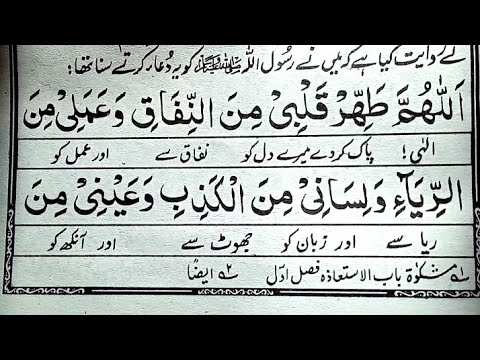 نے روایت کیا ہے کہ میں نے رسول اللہ ﷺ کو یہ دُعاء کرتے سنا تھا:
اَللّٰهُمَّ طَهِّرْ قَلْبِیْ مِنَ النِّفَاقِ وَعَمَلِیْ مِنَ
الٰہی! پاک کردے میرے دل کو نفاق سے اور عمل کو
الرِّيَآءِ وَلِسَانِیْ مِنَ الْكَذِبِ وَعَيْنِیْ مِنَ
ریا سے اور زبان کو جھوٹ سے اور آنکھ کو
۱ه مشکوٰۃ باب الاستعاذہ فصل اوّل ۲ه ایضًا